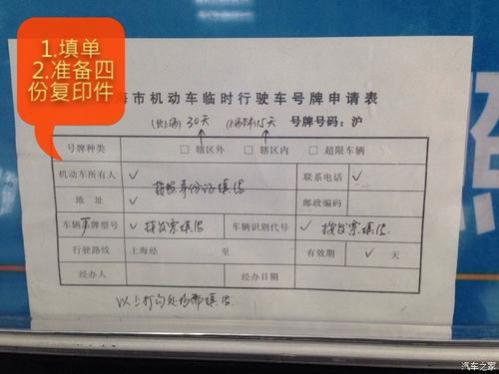 1.填单
2.准备四
份复印件
海市机动车临时行驶车号牌申请表
30天 15天 号牌号码：沪
号牌种类 □ 辖区外 □ 辖区内 □ 超限车辆
机动车所有人 ✓ 按照身份证填写 联系电话 ✓
地 址 ✓ 邮政编码
车辆厂牌型号 ✓ 按发票填写 车辆识别代号 ✓ 按发票填写
行驶路线 上海经 至 有效期 ✓ 天
经办人 经办日期
以上打勾处均需填写
汽车之家